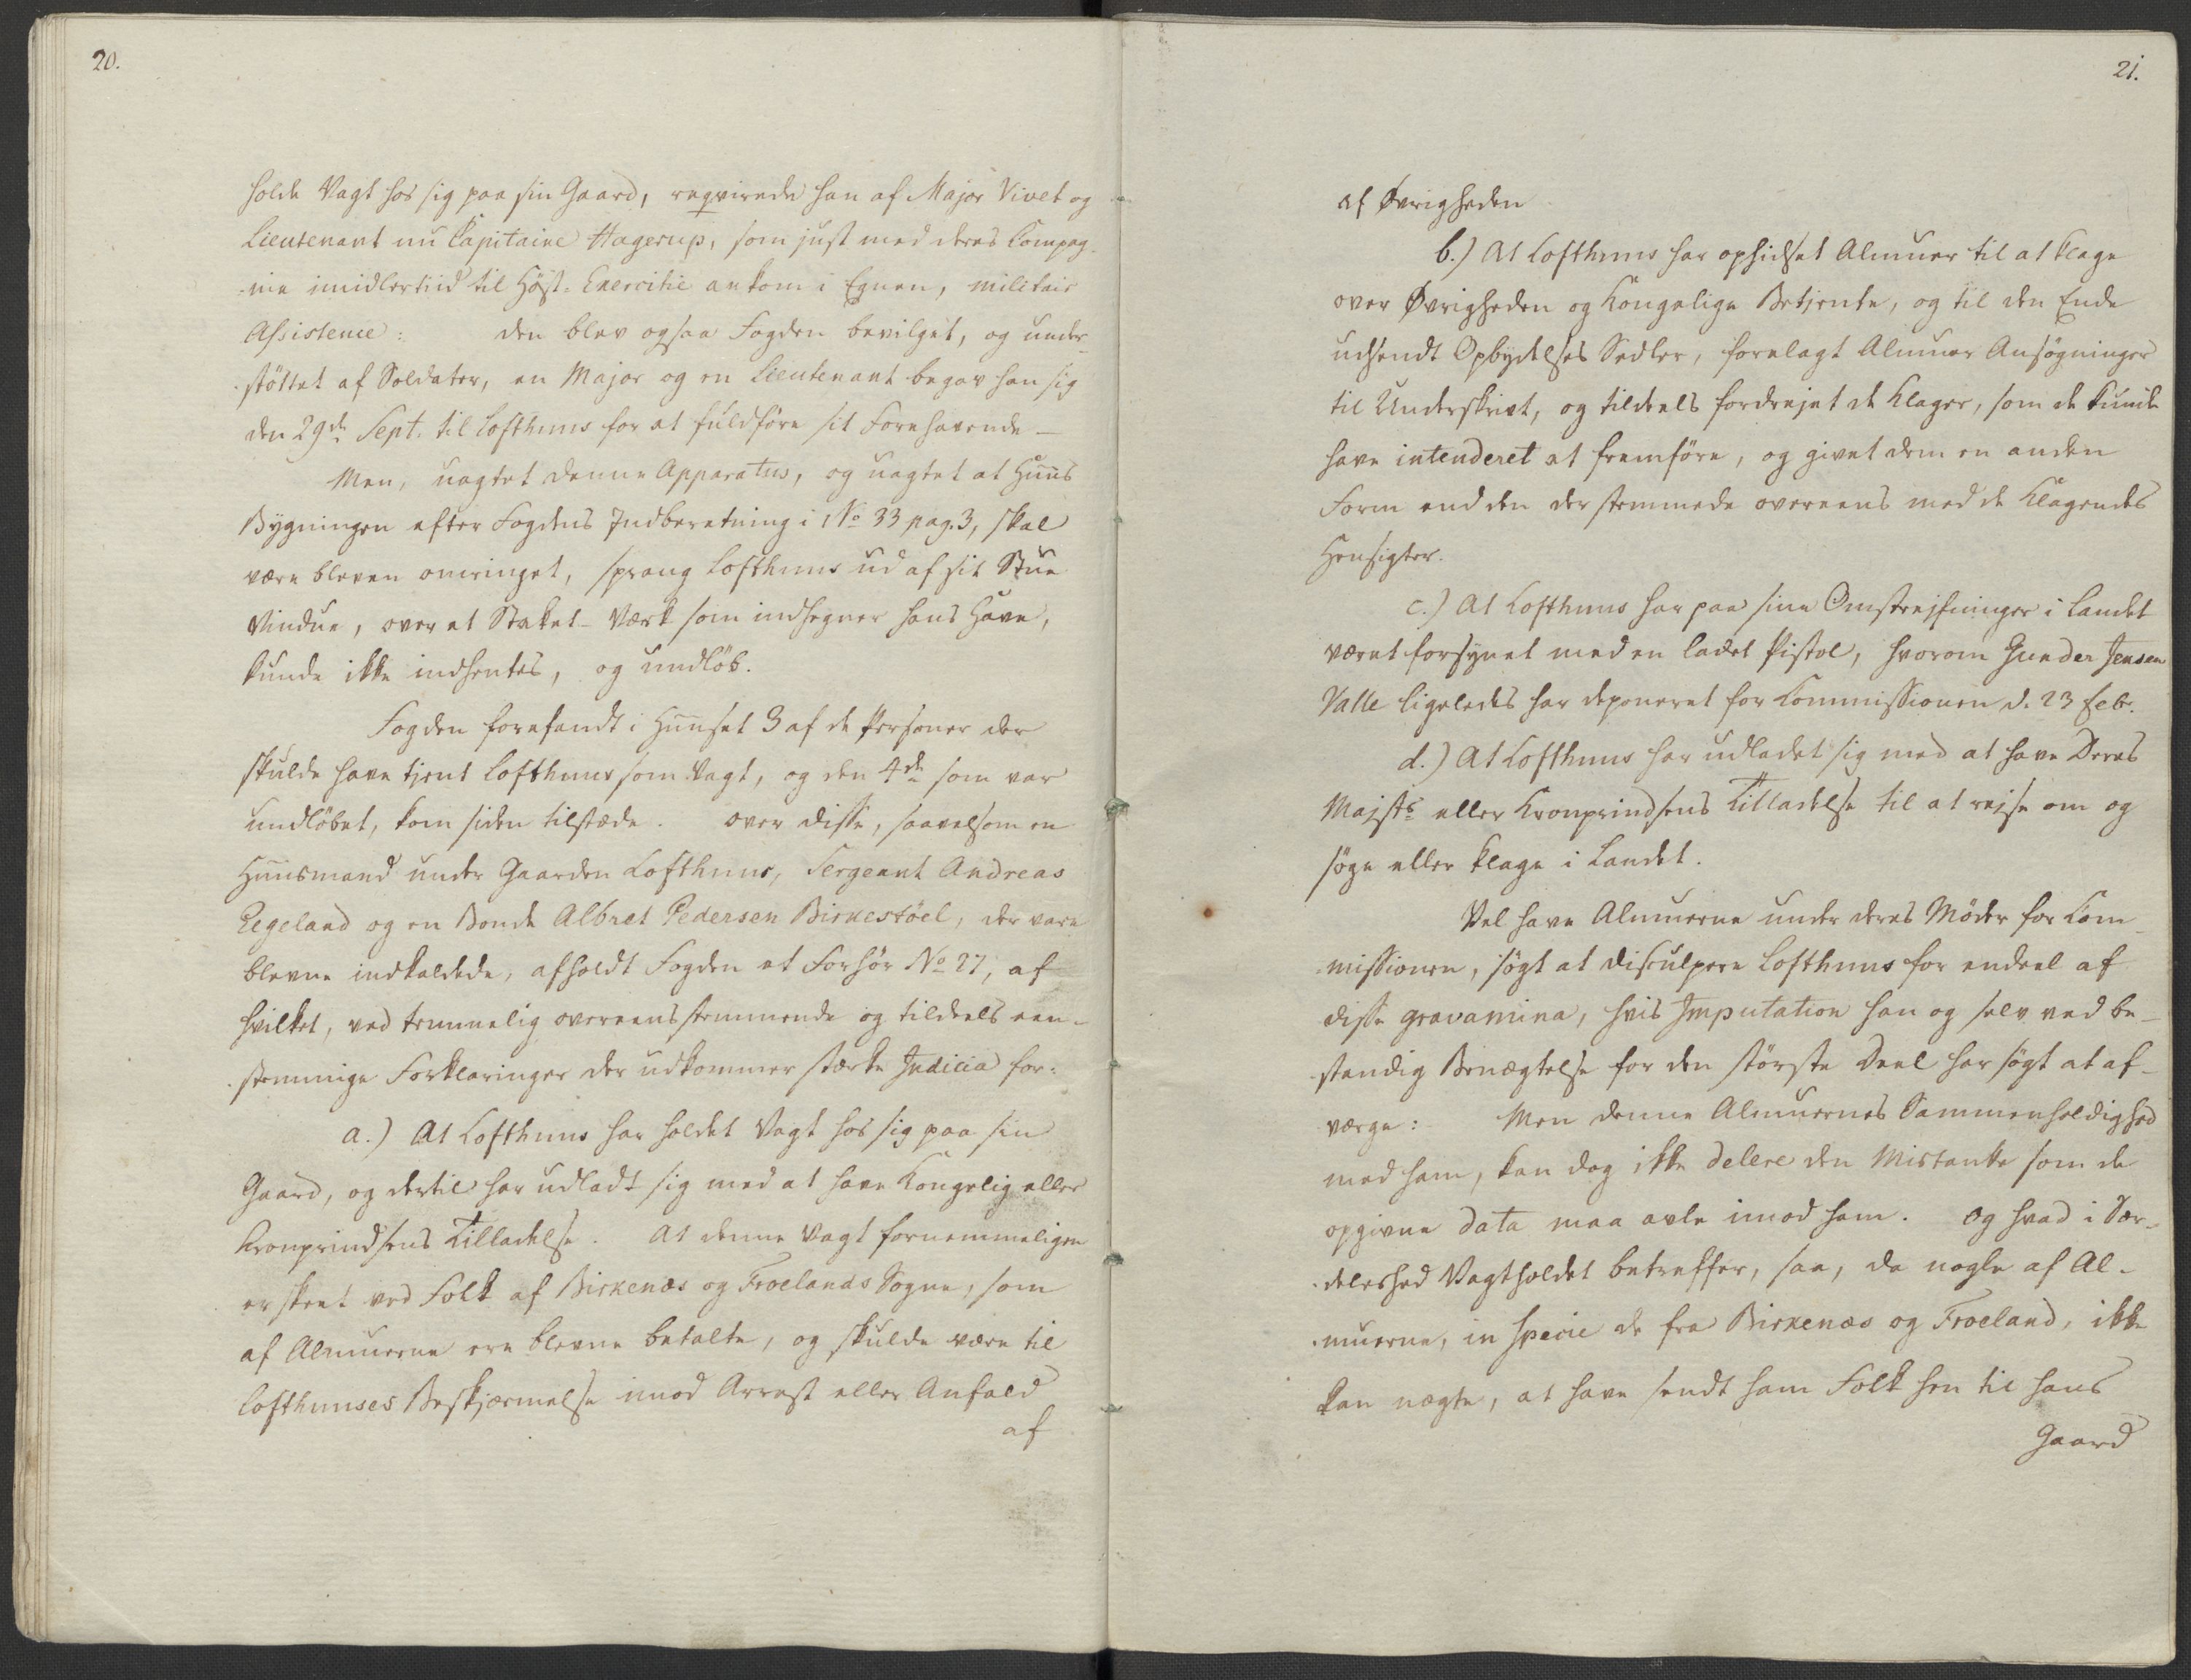 20.
holde Vagt hos sig paa sin Gaard, reqvirerede han af Major Vivet og
Lieutenant nu Capitaine Hagerup, som just med deres Compag-
nie imidlertiid til Höst-Exercitie ankom i Egnen, militair
Assistence: den blev ogsaa Fogden bevilget, og under-
støttet af Soldater, en Major og en Lieutenant begav han sig
den 29de Sept. til Lofthuus for at fuldføre sit Forehavende —
Men, uagtet denne Apparatus, og uagtet at Huus
Bygningen efter Fogdens Indberetning i No 33 pag. 3, skal
være bleven omringet, sprang Lofthuus ud af sit Stue
Vindue, over et Staket-Værk som indhegner hans Have,
kunde ikke indhentes, og undløb.
Fogden forefandt i Huuset 3 af de Personer der
skulde have tjent Lofthuus som Vagt, og den 4de som var
undløbet, kom siden tilstæde. Over disse, saavelsom en
Huusmand under Gaarden Lofthuus, Sergeant Andreas
Regeland og en Bonde Albret Pedersen Birkestöel, der vare
blevne indkaldede, afholdt Fogden et Forhør No 27, af
hvilket, ved temmelig overeensstemmende og tildeels een-
stemmige Forklaringer der udkommer stærke Indicia for:
a.) At Lofthuus har holdet Vagt hos sig paa sin
Gaard, og dertil har udladt sig med at have Kongelig eller
Kronprindsens Tilladelse. At denne Vagt fornemmeligen
er skeet ved Folk af Birkenæs og Froelands Sogne, som
af Almuerne ere blevne betalte, og skulde være til
Lofthuuses Beskjærmelse imod Arrest eller Anfald
af
21.
af Øvrigheden
b.) At Lofthuus har ophidset Almuer til at klage
over Øvrigheden og Kongelige Betjente, og til den Ende
udsendt Opbydelses Sedler, forelagt Almuer Ansøgninger
til Underskrivt, og tildeels fordrejet de Klager, som de kunde
have intenderet at fremføre, og givet dem en anden
Form end den der stemmede overeens med de Klagendes
Hensigter.
c.) At Lofthuus har paa sine Omstrejfninger i Landet
været forsynet med en ladet Pistol, hvorom Gunder Jensen
Valle ligeledes har deponeret for Commissionen d. 23 Febr.
d.) At Lofthuus har udladet sig med at have Deres
Majsts eller Kronprindsens Tilladelse til at rejse om og
søge eller klage i Landet.
Vel have Almuerne under deres Møder for Com-
missionen, søgt at disculpere Lofthuus for endeel af
disse gravamina, hvis Imputation han og selv ved be-
standig Benægtelse for den største Deel har søgt at af-
værge: Men denne Almuernes Sammenholdighed
med ham, kan dog ikke delere den Mistanke som de
opgivne data maa avle imod ham. Og hvad i Sær-
deleshed Vagtholdet betreffer, saa, da nogle af Al-
muerne, in specie de fra Birkenæs og Froeland, ikke
kan nægte, at have sendt ham Folk hen til hans
Gaard